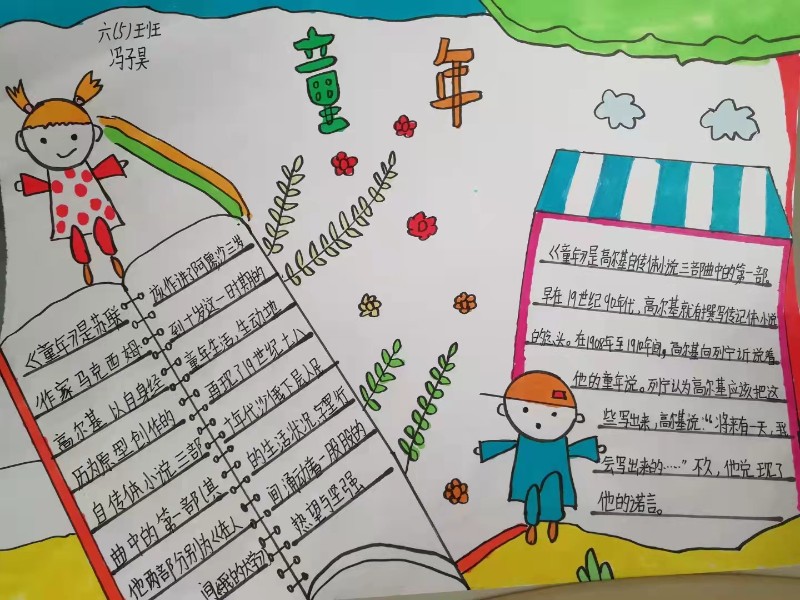 六(5)班
冯子昊
童年
《童年》是苏联
作家马克西姆
高尔基以自身经
历为原型创作的
自传体小说三部
曲中的第一部(其
他两部分别为《在人
间
我的大学》)
该作讲了阿廖沙三岁
到十岁这一时期的
童年生活,生动地
再现了19世纪七八
十年代沙俄下层人民
的生活状况,字里行
间涌动着一股股的
热望与坚强
《童年》是高尔基自传体小说三部曲中的第一部。
早在19世纪90年代,高尔基就有撰写传记体小说
的念头。在1908年至1910年间,高尔基向列宁诉说着
他的童年说。列宁认为高尔基应该把这
些写出来,高尔基说:“将来有一天,我
会写出来的……”不久,他兑现了
他的诺言。